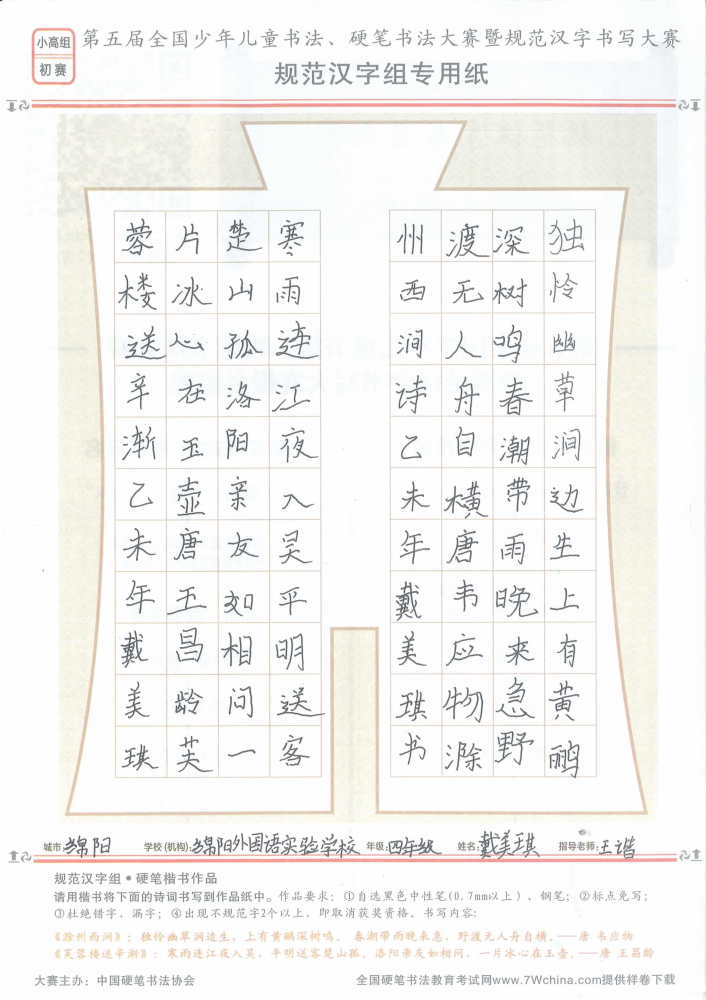 小高组
初赛
第五届全国少年儿童书法、硬笔书法大赛暨规范汉字书写大赛
规范汉字组专用纸
独怜幽草涧边生上有黄鹂
深树鸣春潮带雨晚来急野
渡无人舟自横唐韦应物滁
州西涧诗乙未年戴美琪书
寒雨连江夜入吴平明送客
楚山孤洛阳亲友如相问一
片冰心在玉壶唐王昌龄芙
蓉楼送辛渐乙未年戴美琪
城市:绵阳 学校(机构):绵阳外国语实验学校 年级:四年级 姓名:戴美琪 指导老师:王谐
规范汉字组•硬笔楷书作品
请用楷书将下面的诗词书写到作品纸中。作品要求：①自选黑色中性笔(0.7mm以上)、钢笔；②标点免写；
③杜绝错字、漏字；④出现不规范字2个以上，即取消获奖资格。书写内容：
《滁州西涧》：独怜幽草涧边生，上有黄鹂深树鸣。春潮带雨晚来急，野渡无人舟自横。——唐 韦应物
《芙蓉楼送辛渐》：寒雨连江夜入吴，平明送客楚山孤。洛阳亲友如相问，一片冰心在玉壶。——唐 王昌龄
大赛主办：中国硬笔书法协会 全国硬笔书法教育考试网www.7Wchina.com提供样卷下载